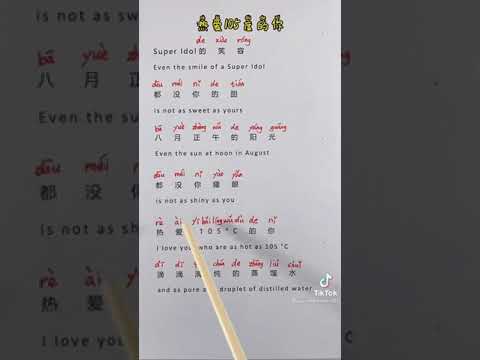 热爱105度的你
de xiào róng
Super Idol的 笑 容
Even the smile of a Super Idol
dōu méi nǐ de tián
都 没 你 的 甜
is not as sweet as yours
bā yuè zhèng wǔ de yáng guāng
八 月 正 午 的 阳 光
Even the sun at noon in August
dōu méi nǐ yào yǎn
都 没 你 耀 眼
is not as shiny as you
rè ài yī bǎi líng wǔ dù de nǐ
热 爱 1 0 5 ° C 的 你
I love you who are as hot as 105 °C
dī dī chún de zhēng liú shuǐ
滴 滴 纯 的 蒸 馏 水
and as pure as droplet of distilled water
rè ài
热 爱 的 你
I love you w are as hot as 105 °C
TikTok